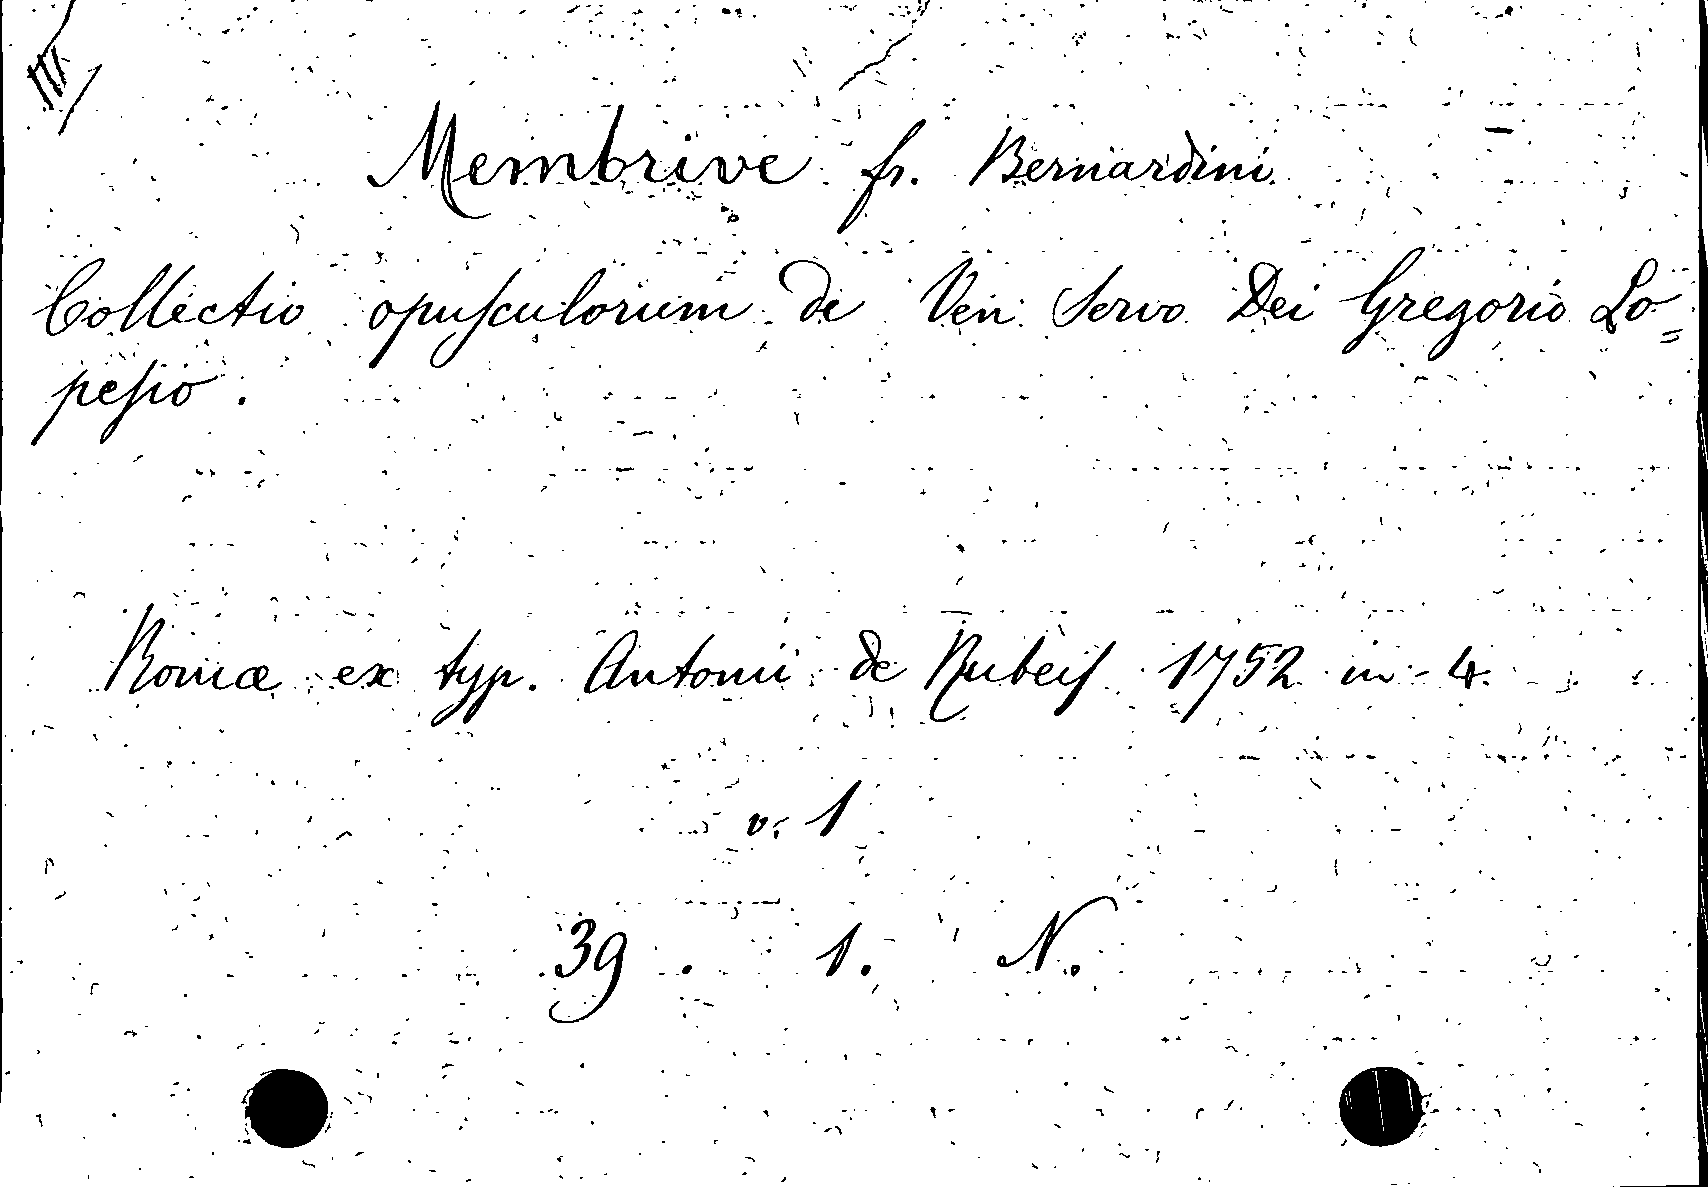 Membrive fr. Bernardini
Collectio opusculorum de Ven Servo Dei Gregorio Lo=
pesio.
Romæ ex typ. Antonii de Rubeis 1752 in-4.
v. 1
39. 1. N.